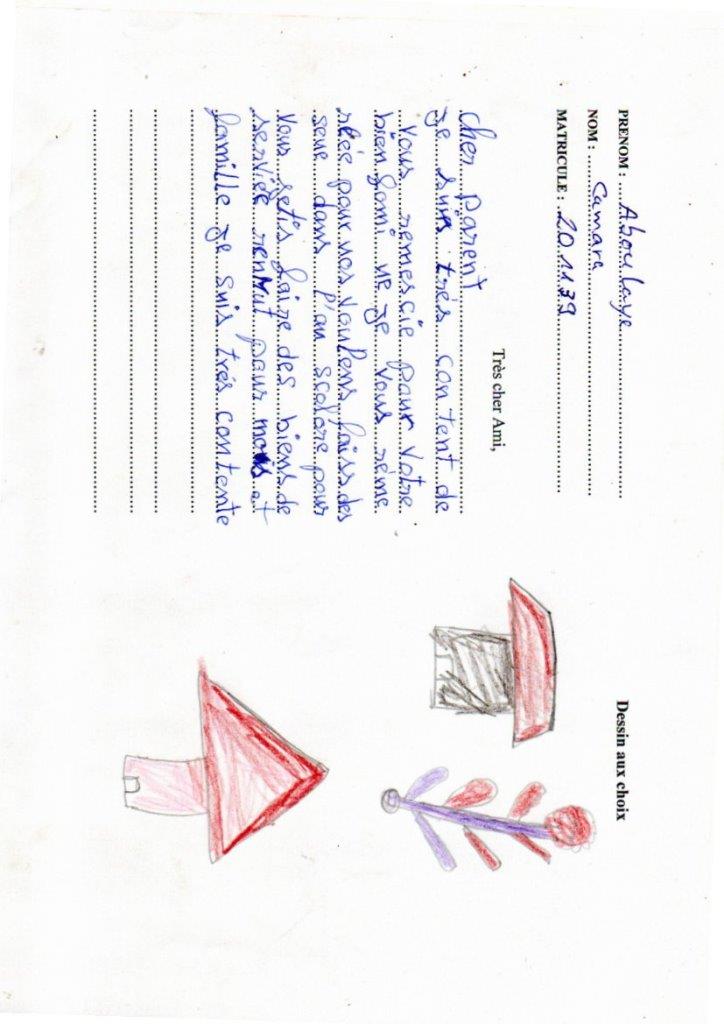 PRENOM : Aboulaye
NOM : Camara
MATRICULE : 201139
Très cher Ami,
cher parent
Je suis très content de
vous remescie paur votre
bien fami ne je vous réme
rbée pour nos voulens faiss des
seue dans p'an scolore pour
vous setis faire des biens de
serviée renMut pours mois et
famille je suis très contente
Dessin aux choix